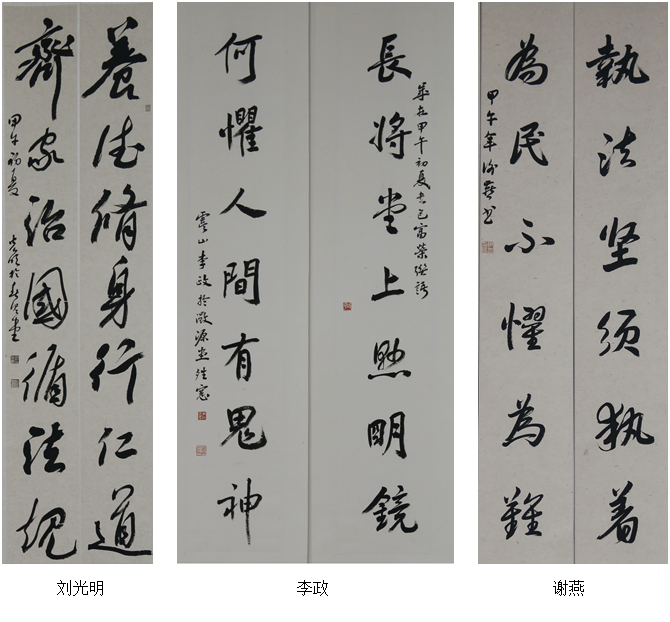 養德脩身行仁道
齊家治國循法規
甲午初夏
長將堂上懸明鏡
歲在甲午初夏
何懼人間有鬼神
虞山李政於
執法坚須執着
為民不懼為難
甲午年謝燕书
刘光明
李政
谢燕